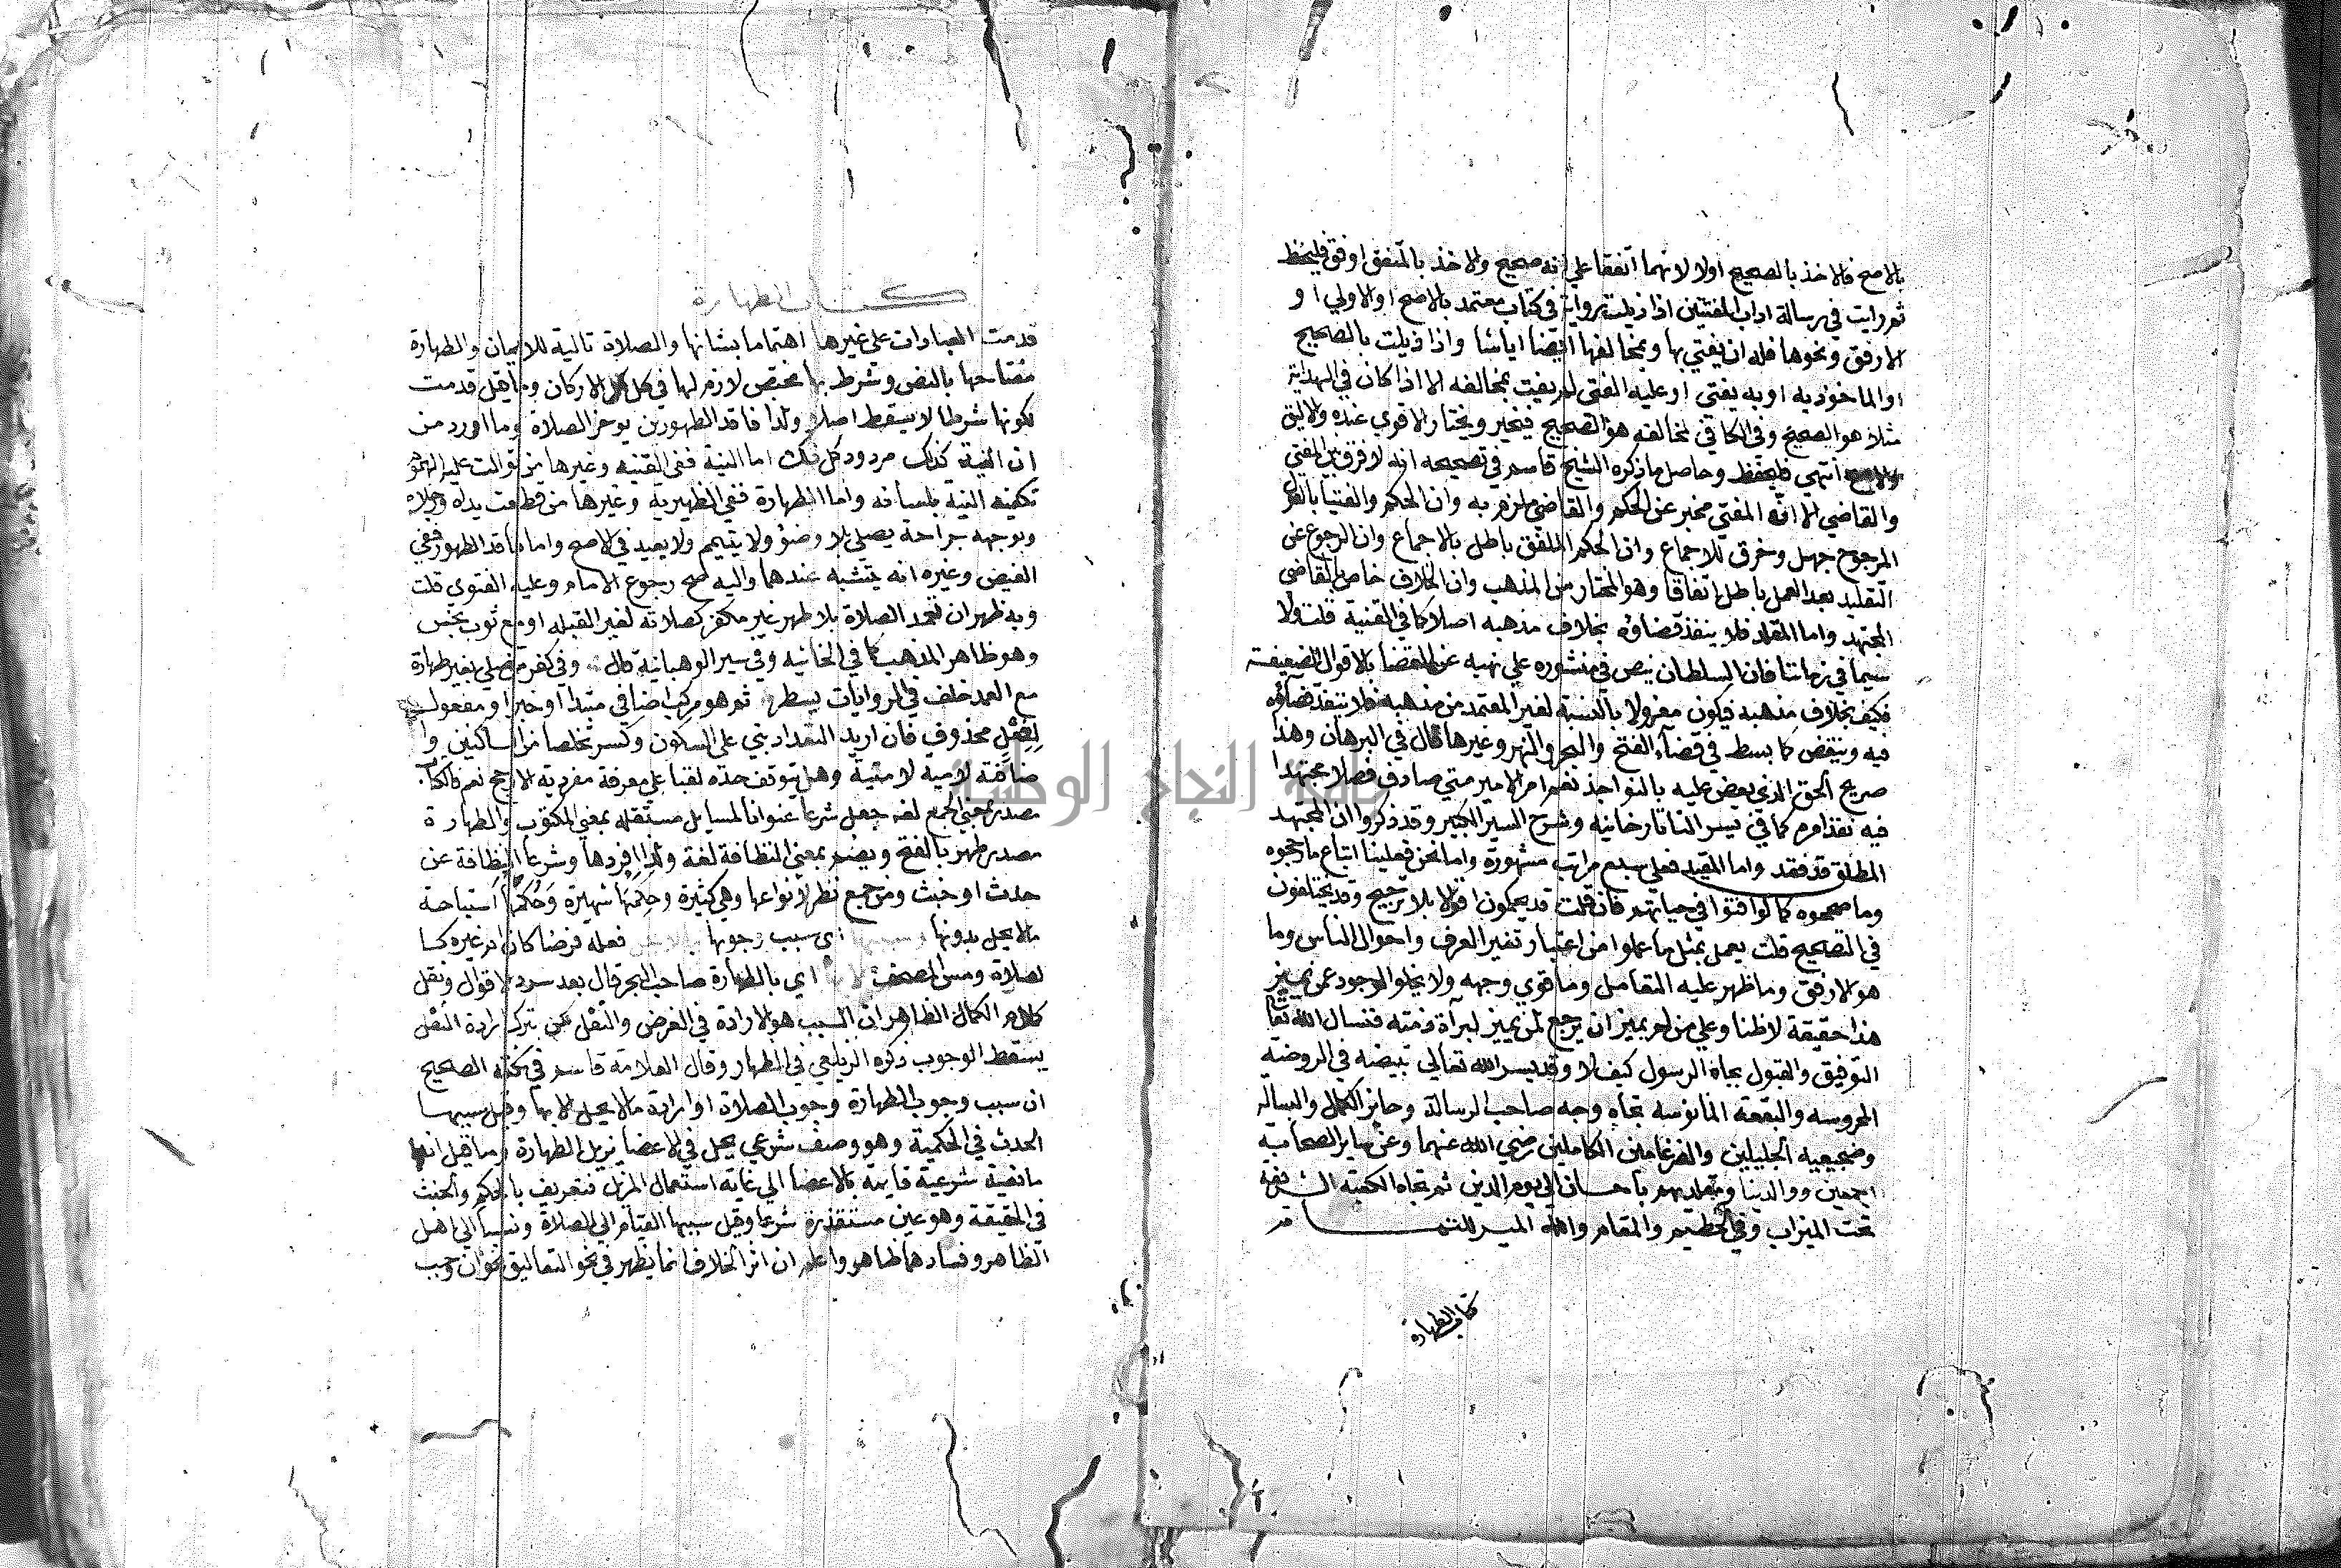 بالاصح فالاخذ بالصحيح اولا لانهما اتفقا علي انه صحيح والاخذ بالمتفق اوفق فليحفظ
ثم رايت في رسالة اداب المفتيين اذا ذيلت رواية في كتاب معتمد بالاصح او الاولي او
الارفق ونحوها فله ان يفتي بها وبمخالفها ايضا اياشا واذا ذيلت بالصحيح
او الماخوذ به او به يفتي او عليه الفتي لم يفت بمخالفه الا اذا كان في الهداية
مثلا هو الصحيح وفي الكافي بمخالفه هو الصحيح فيخير ويختار الاقوي عنده والاليق
والاصح انتهي فليحفظ وحاصل ما ذكره الشيخ قاسم في تصحيحه انه لا فرق بين المفتي
والقاضي الا ان المفتي مخبر عن الحكم والقاضي ملزم به وان الحكم والفتيا بالقول
المرجوح جهل وخرق للاجماع وان الحكم الملفق باطل بالاجماع وان الرجوع عن
التقليد بعد العمل باطل اتفاقا وهو المختار من المذهب وان الخلاف خاص بالقاضي
المجتهد واما المقلد فلا ينفذ قضاؤه بخلاف مذهبه اصلا كما في القنية قلت ولا
سيما في زماننا فان السلطان ينص في منشوره علي نهيه عن القضا بالاقوال الضعيفة
فكيف بخلاف مذهبه فيكون معزولا بالنسبة لغير المعتمد من مذهبه فلا ينفذ قضاؤه
فيه وينقض كما بسط في قضاء الفتح والبحر والنهر وغيرها قال في البرهان وهذا
صريح الحق الذي يعض عليه بالنواجذ نعم امر الامير متي صادف فصلا مجتهدا
فيه نفذ امره كما في سير التاتارخانيه وشرح السير الكبير وقد ذكروا ان المجتهد
المطلق قد فقد واما المقيد فعلي سبع مراتب مشهورة واما نحن فعلينا اتباع ما رجحوه
وما صححوه كما لو افتوا في حياتهم فان قلت قد يحكمون اقوالا بلا ترجيح وقد يختلفون
في التصحيح قلت يعمل بمثل ما عملوا من اعتبار تغير العرف واحوال الناس وما
هو الارفق وما ظهر عليه التعامل وما قوي وجهه ولا يخلو الوجود عمن يميز
هذا حقيقة لا ظنا وعلي من لم يميز ان يرجع لمن يميز لبرآة ذمته فنسال الله تعالي
التوفيق والقبول بجاه الرسول كيف لا وقد يسر الله تعالي تبيضه في الروضة
المحروسه والبقعة المانوسه تجاه وجه صاحب الرسالة وحايز الكمال والبساله
وضجيعيه الجليلين والضرغامين الكاملين رضي الله عنهما وعن ساير الصحابة
اجمعين ووالدينا ومقلديهم باحسان الي يوم الدين ثم تجاه الكعبة الشريفة
تحت الميزاب وفي الحطيم والمقام والله الميسر للتمام
كتاب الطهارة
كتاب الطهارة
قدمت العبادات علي غيرها اهتماما بشانها والصلاة تالية للايمان والطهارة
مفتاحها بالنص وشرط بها مختص لازم لها في كل الاركان وما قيل قدمت
لكونها شرطا لا يسقط اصلا ولذا فاقد الطهورين يوخر الصلاة وما اورد من
ان النية كذلك مردود كل ذلك اما النية ففي القنيه وغيرها من توالت عليه الهموم
تكفيه النية بلسانه واما الطهارة ففي الظهيرية وغيرها من قطعت يداه ورجلاه
وبوجهه جراحة يصلي بلا وضؤ ولا يتيمم ولا يعيد في الاصح واما فاقد الطهور ففي
الفيض وغيره انه يتشبه عندهما واليه صح رجوع الامام وعليه الفتوي قلت
وبه ظهر ان تعمد الصلاة بلا طهر غير مكفر كصلاته لغير القبله او مع ثوب نجس
وهو ظاهر المذهب كما في الخانيه وفي سير الوهبانية قال وفي كفر من صلي بغير طهارة
مع العمد خلف في الروايات يسطر ثم هو مركب اضافي مبتدا او خبر او مفعول
لفعل محذوف فان اريد التعداد بني علي السكون وكسر تخلصا من الساكنين وا
ضافته لاميه لا منية وهل يتوقف حده لقبا علي معرفة مفرديه الارجح نعم فالكتاب
مصدر بمعني الجمع لغه جعل شرعا عنوانا لمسايل مستقله بمعني المكتوب والطهارة
مصدر طهر بالفتح ويضم بمعني النظافة لغة ولذا افردها وشرعا النظافة عن
حدث او خبث ومن جمع نظر لانواعها وهي كثيرة وحكمها شهيرة وحكمها استباحة
مالا يحل بدونها وسببها اي سبب وجوبها فعله فرضا كان او غيره كا
لصلاة ومس المصحف اي بالطهارة صاحب البحر قال بعد سرد الاقوال ونقل
كلام الكمال الظاهر ان السبب هو الارادة في الفرض والنفل لكن بترك ارادة النفل
يسقط الوجوب ذكره الزيلعي في الظهار وقال العلامة قاسم في نكته الصحيح
ان سبب وجوب الطهارة وجوب الصلاة او ارادة مالا يحل الا بها وقيل سببها
الحدث في الحكمية وهو وصف شرعي يحل في الاعضا يزيل الطهارة وما قيل انه
مانعية شرعية قايمة بالاعضا الي غاية استعمال المزيل فتعريف بالحكم والخبث
في الحقيقة وهو عين مستقذرة شرعا وقيل سببها القيام الي الصلاة ونسبا الي اهل
الظاهر وفسادهما ظاهر واعلم ان اثر الخلاف انما يظهر في نحو التعاليق نحو ان وجب
جامعة النجاح الوطنية